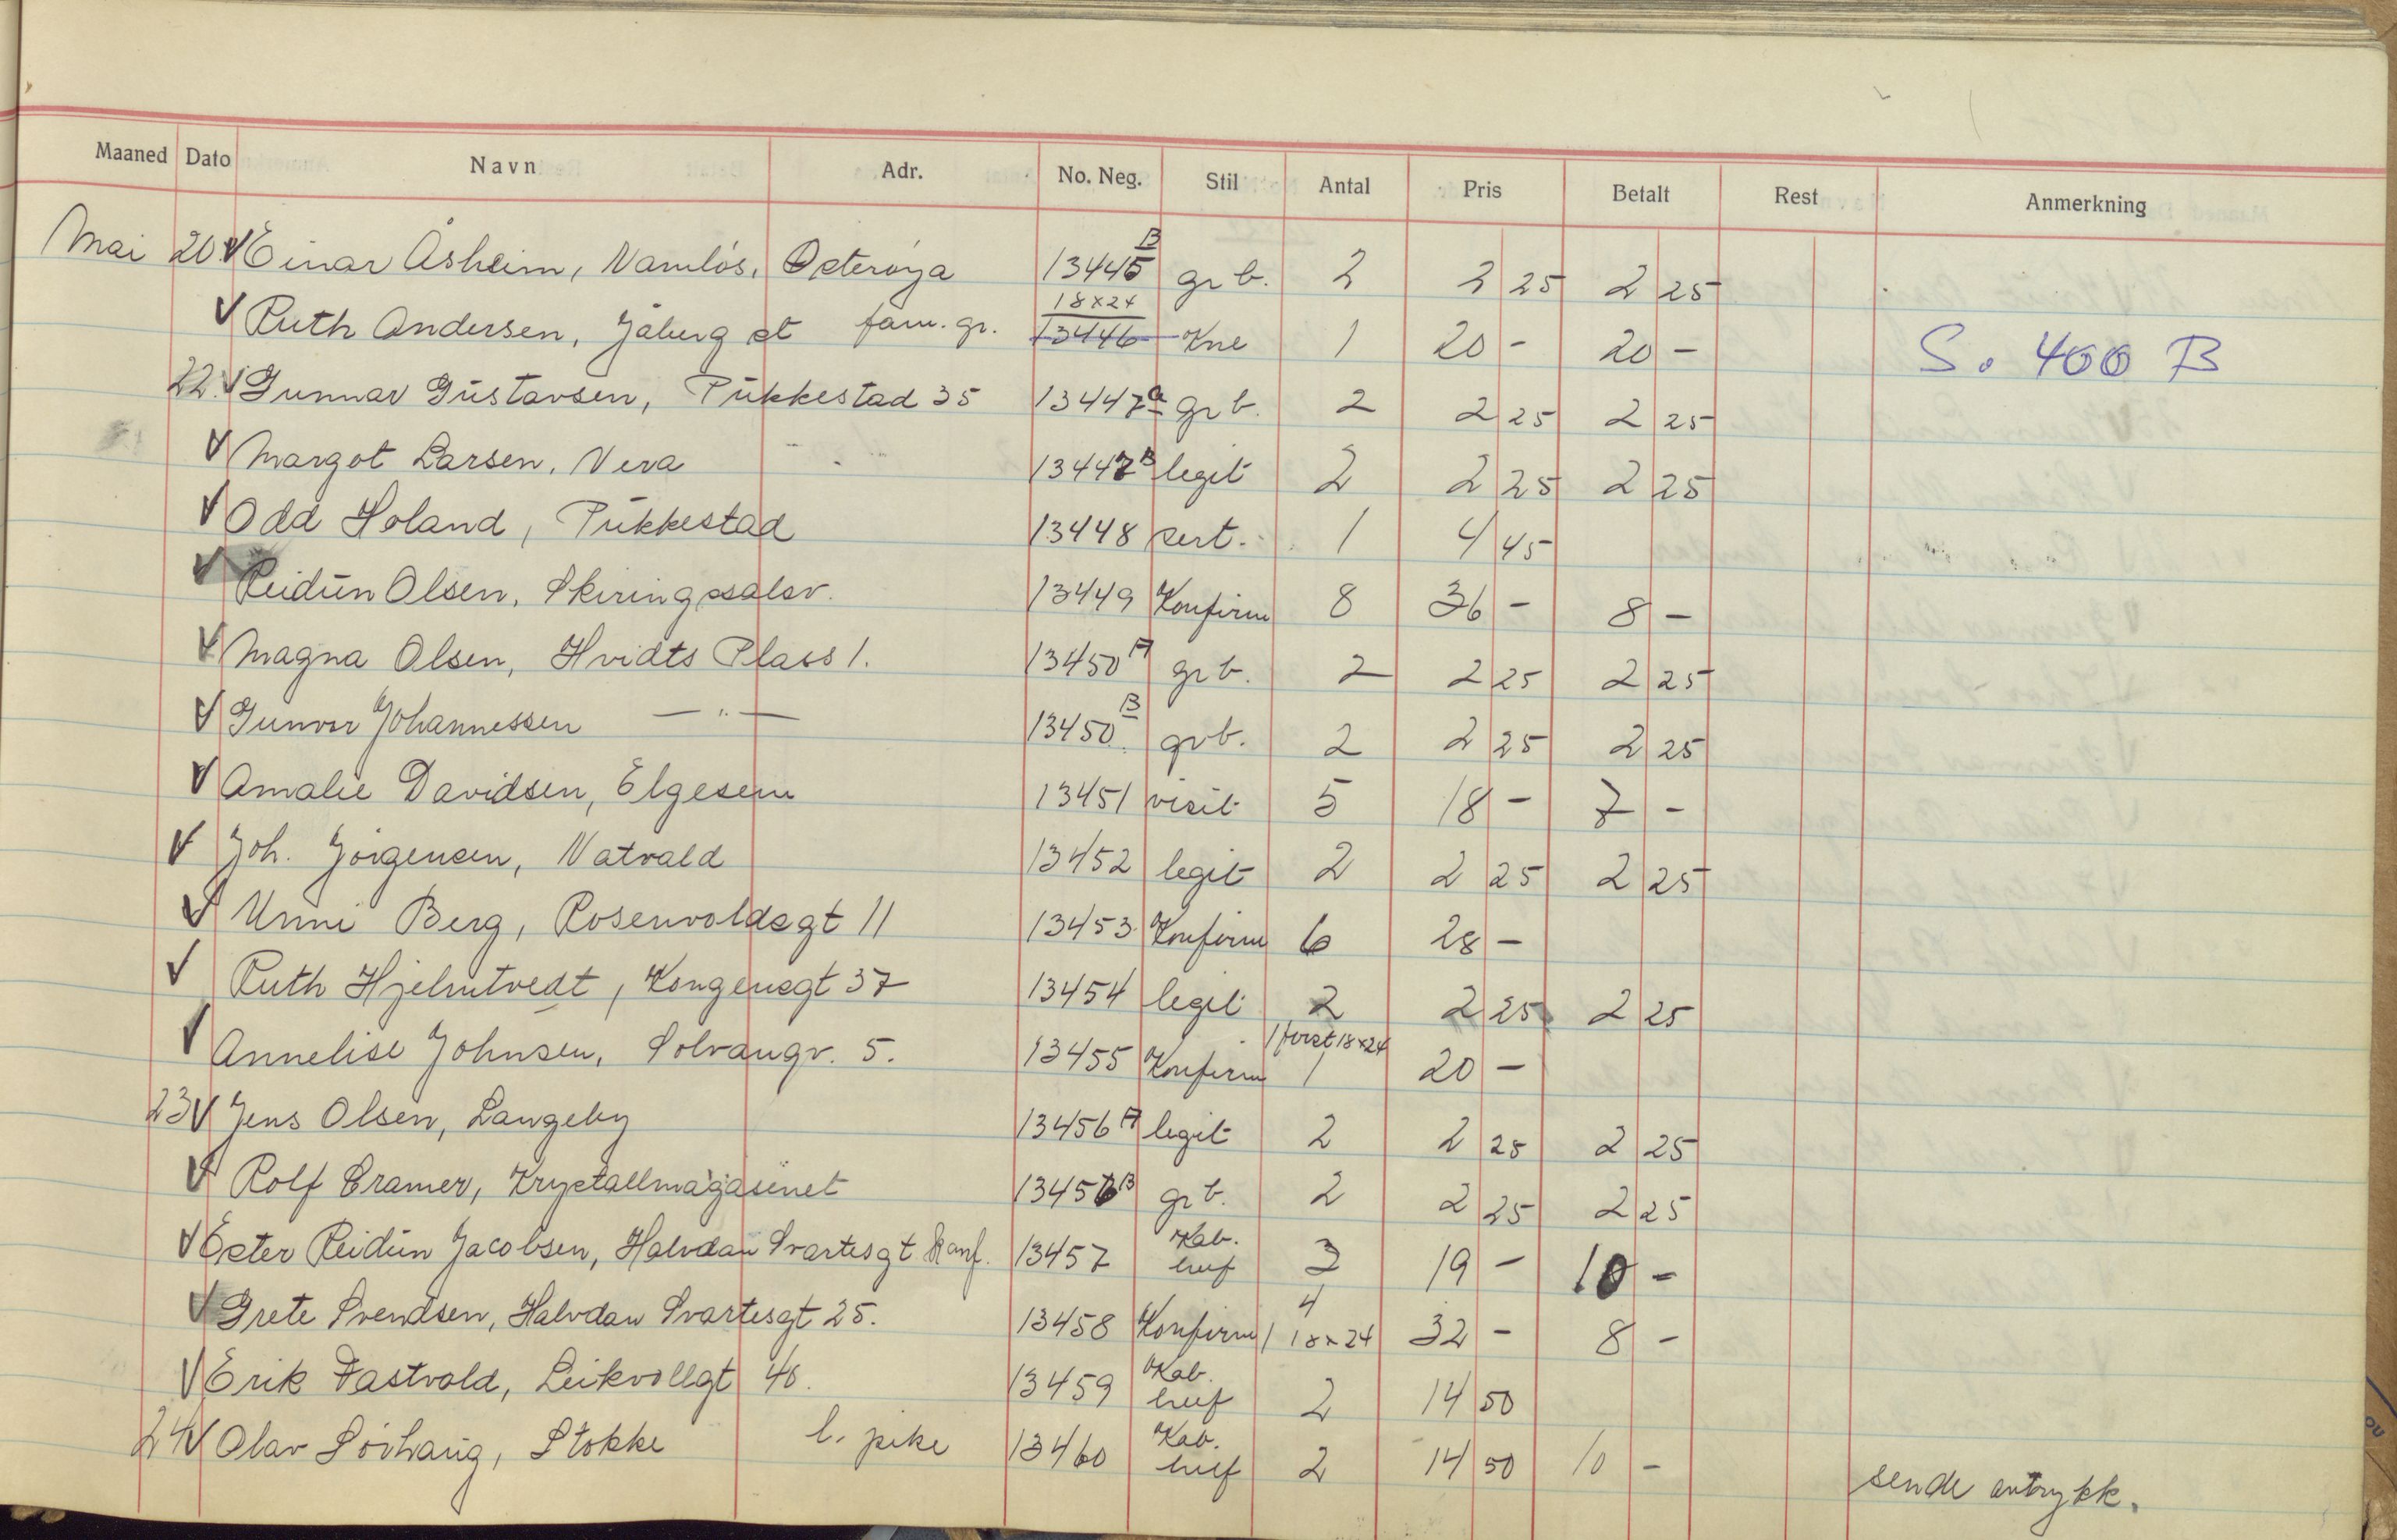 Maaned Dato Navn Adr. No. Neg. Stil Antal Pris Betalt Rest Anmerkning
Mai 20 Einar Åsheim, Namlós, Østerøya 13445 B gr b. 2 2 25 2 25
Ruth Andersen, Jåberg st fam. gr. 18x24 13446 Kne 1 20 - 20 - S. 400 B
22. Gunnar Gustavsen, Pukkestad 35 13447 a gr b. 2 2 25 2 25
Margot Larsen, Vera 13447 B legit 2 2 25 2 25
Odd Holand, Pukkestad 13448 sert. 1 4 45
Reidun Olsen, Skiringssalsv. 13449 Konfirm 8 36 - 8 -
Magna Olsen, Hvidts Plass 1. 13450 A gr b. 2 2 25 2 25
Gunvor Johannessen — " — 13450 B grb. 2 2 25 2 25
Amalie Davidsen, Elgesem 13451 visit 5 18 - 7 -
Joh. Jörgensen, Natvald 13452 legit 2 2 25 2 25
Unni Berg, Rosenvoldsgt 11 13453 Konfirm 6 28 -
Ruth Hjelmtvedt, Kongensgt 37 13454 legit 2 2 25 2 25
Annelise Johnsen, Solvangv. 5. 13455 Konfirm 1 forst 18x24 1 20 -
23 Jens Olsen, Langeby 13456 A legit 2 2 25 2 25
Rolf Cramer, Krystallmagasinet 13456 B gr b. 2 2 25 2 25
Ester Reidun Jacobsen, Halvdan Svartesgt Konf. 13457 Kab. huf 3 19 - 10 -
Grete Svendsen, Halvdan Svartesgt 25. 13458 Konfirm 4 1 18x24 32 - 8 -
Erik Fastvold, Leikvollgt 40. 13459 Kab. huf 2 14 50
24 Olav Sörhaug, Stokke l. pike 13460 Kab. huf 2 14 50 10 - sende avtrykk.